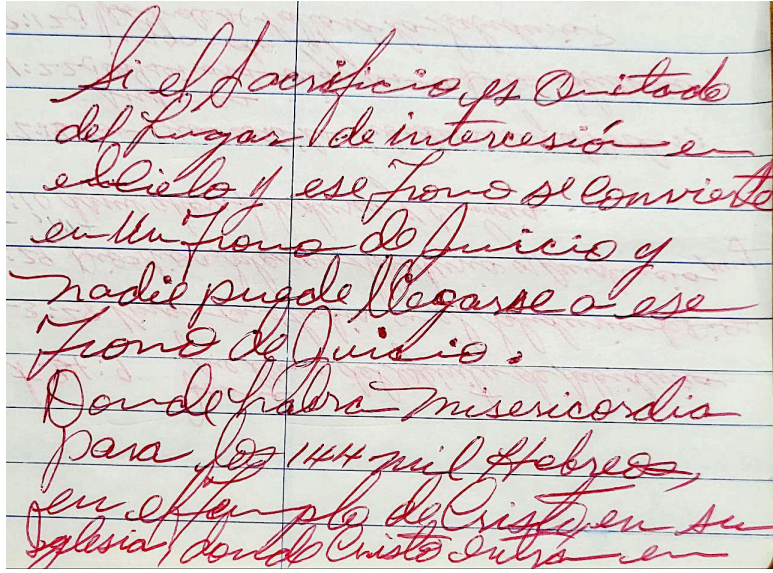 Si el Sacrificio, es Quitado
del Lugar de intercesión en
el Cielo y ese Trono se Convierte
en Un Trono de Juicio y
nadie puede llegarse a ese
Trono de Juicio.
Donde habra misericordia
para los 144 mil Hebreos,
en el Templo de Cristo, en su
Iglesia, donde Cristo entra en